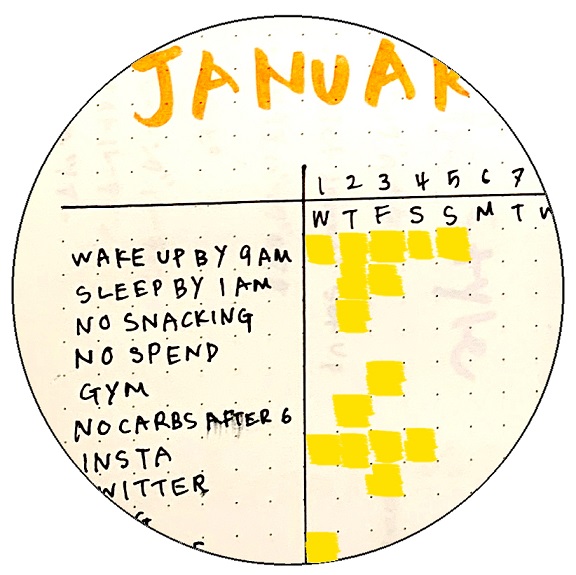 JANUAR
1 2 3 4 5 6 7
W T F S S M T W
WAKE UP BY 9 AM
SLEEP BY 1 AM
NO SNACKING
NO SPEND
GYM
NO CARBS AFTER 6
INSTA
WITTER